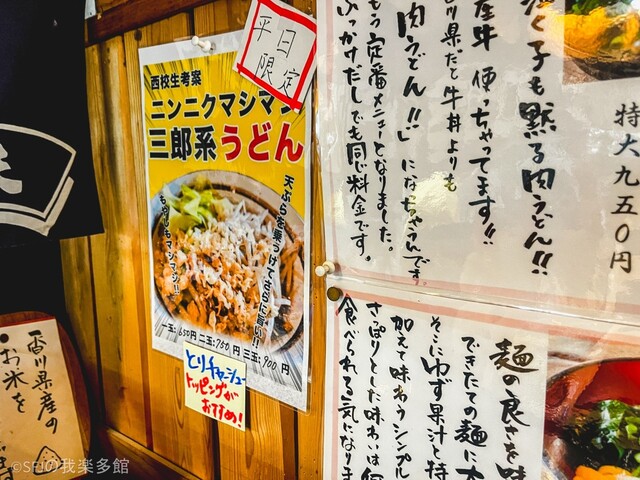 平日
限定
西校生考案
ニンニクマシマシ
三郎系うどん
天ぷらを乗っけてさらに旨い!!
もやしもマシマシ!
一玉:650円 二玉:750円 三玉:900円
とりチャーシュー
トッピングが
おすすめ!
泣く子も黙る肉うどん!!
産牛使っちゃってます!!
川県だと牛丼よりも
肉うどん!!」になっちゃうんです
もう定番メニューとなりました。
ぶっかけだしでも同じ料金です。
特大九五〇円
麺の良さを味
できたての麺に
そこにゆず果汁と特
加えて味わうシンプル
さっぱりとした味わいは
食べられる気になりま
香川県産の
お米を
©SPの我楽多館